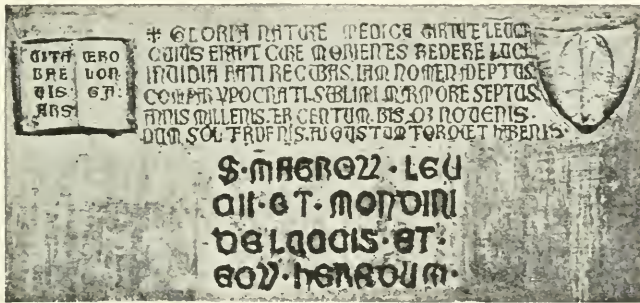 VITA VERO
BRE LON
VIS GA:
ARS
+ GLORIA NATURE MEDICE VIRTUTE LEUCI
CUIUS ERANT CURE MORIENTES REDERE LUCI
INVIDIA FATI RECUBAS. IAM NOMEN ADEPTUS.
COMPAR YPOCRATI. SUBLIMI MARMORE SEPTUS.
ANNIS MILLENIS. TER CENTUM. BIS. NOVENIS.
DUM SOL AUGUSTUM TORQUET HABENIS.
S. MAGROꝜ. LEU
CII. ET. MONDINI
DE LEUCIIS. ET.
EOꝜ. HERADUM.